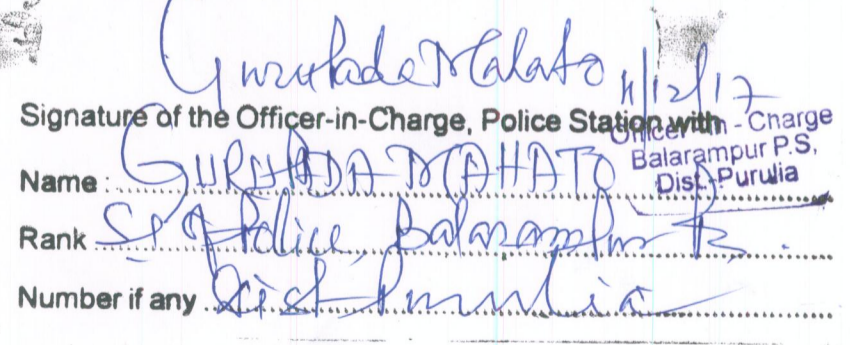 Guruhada Mahato
4/12/17
Signature of the Officer-in-Charge, Police Station with
Officer-in-Charge
Balarampur P.S,
Dist.-Purulia
Name : GURUHADA MAHATO
Rank SI of Police, Balarampur PS.
Number if any Dist-Purulia